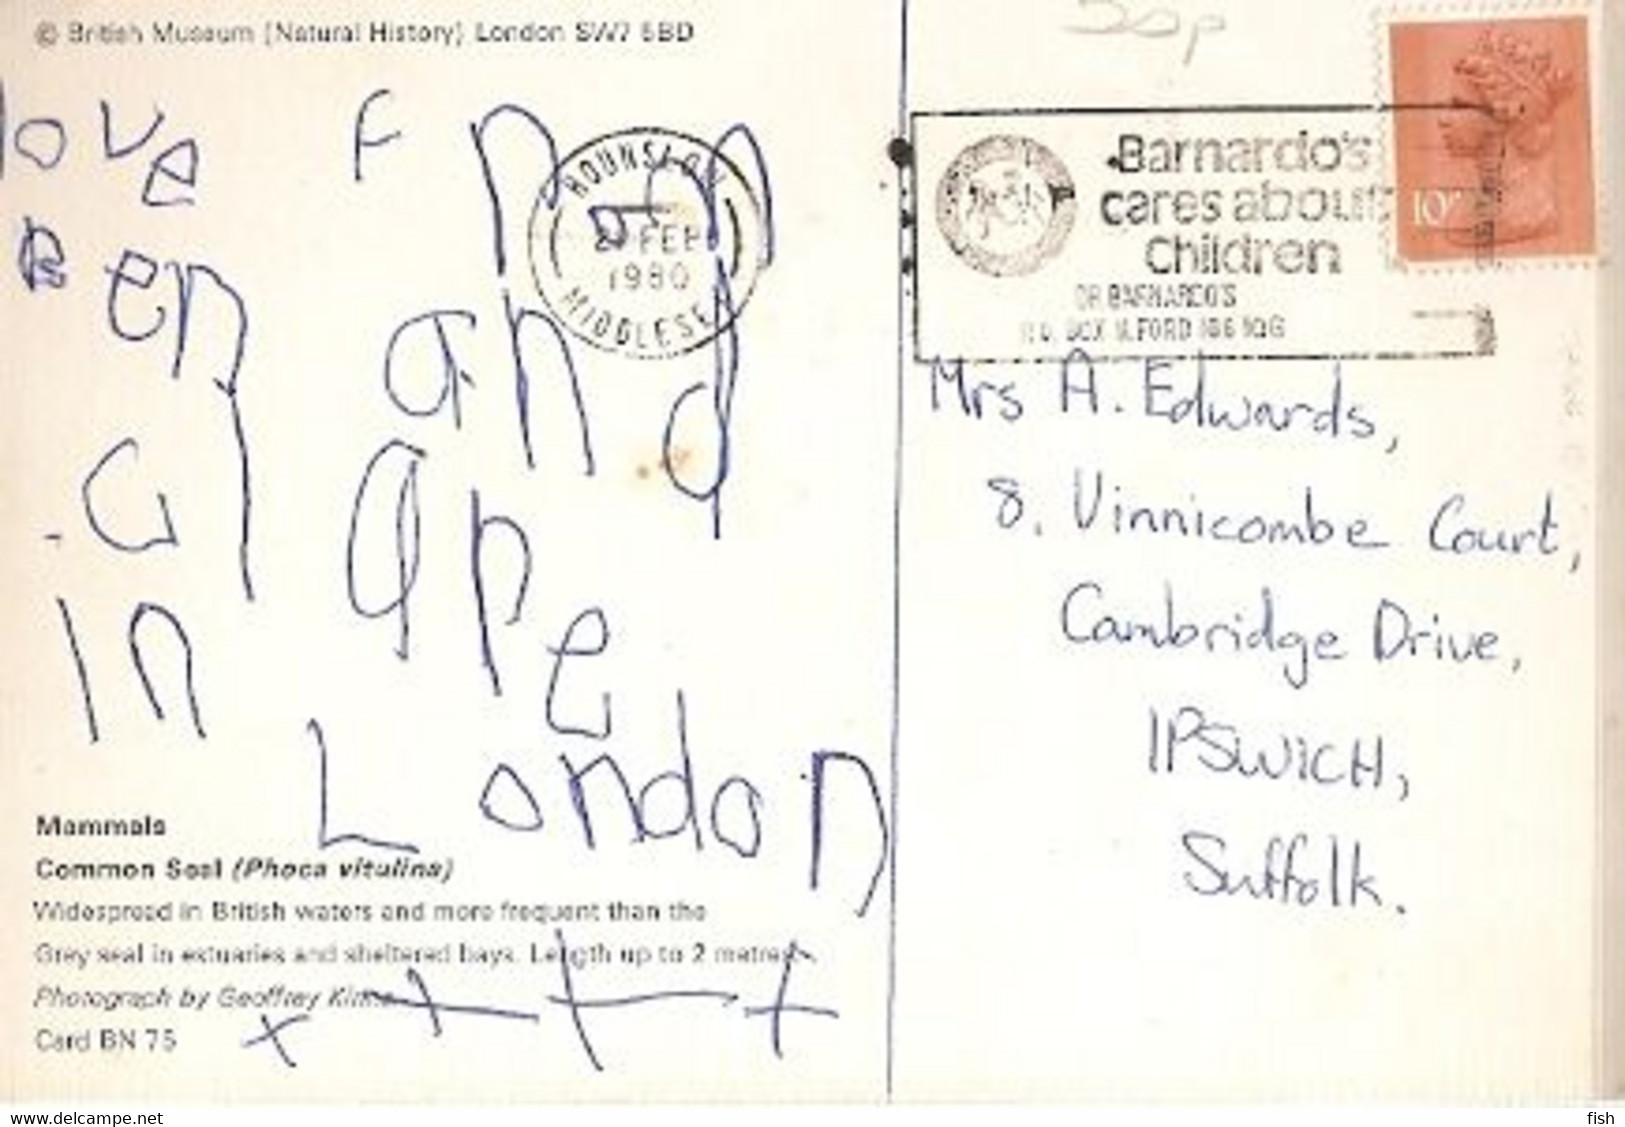 © British Museum (Natural History) London SW7 5BD
love From
Ben and
Gape
in London
Mammals
Common Seal (Phoca vitulina)
Widespread in British waters and more frequent than the
Grey seal in estuaries and sheltered bays. Length up to 2 metres.
Photograph by Geoffrey
Card BN 75
HOUNSLOW
FEB
1980
MIDDLESEX
30p
Barnardo's
cares about
Children
DR BARNARDO'S
P.O. BOX ILFORD IG6 1QG
10P
Mrs A. Edwards,
8. Vinnicombe Court,
Cambridge Drive,
IPSWICH,
Suffolk.
www.delcampe.net
fish